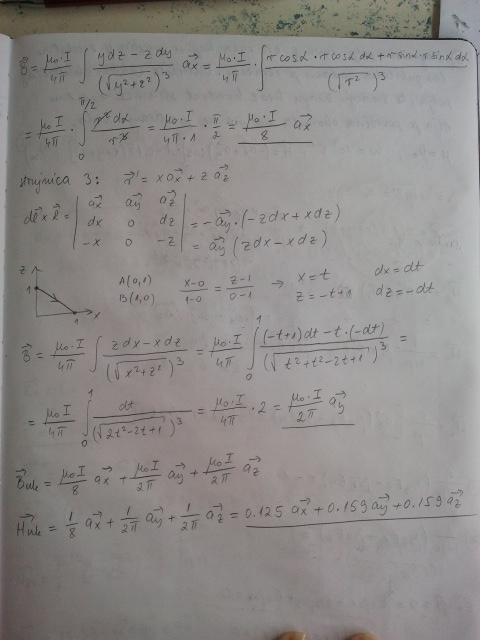 B⃗ = μ₀·I/4π ∫ (y dz − z dy)/(√(y²+z²))³ a⃗x = μ₀·I/4π · ∫ (r cosα · r cosα dα + r sinα · r sinα dα)/(√(r²))³
= μ₀·I/4π · ∫₀^(π/2) r² dα/r³ = μ₀·I/(4π·1) · π/2 = μ₀·I/8 a⃗x
strujnica 3: r⃗' = x a⃗x + z a⃗z
dl⃗ x l⃗ = | a⃗x a⃗y a⃗z | = −a⃗y · (−z dx + x dz)
| dx 0 dz |
| −x 0 −z | = a⃗y (z dx − x dz)
z 1 1 x
A(0,1) B(1,0) (x−0)/(1−0) = (z−1)/(0−1) → x = t dx = dt
z = −t+1 dz = −dt
B⃗ = μ₀·I/4π ∫ (z dx − x dz)/(√(x²+z²))³ = μ₀·I/4π ∫₀¹ ((−t+1)dt − t·(−dt))/(√(t²+t²−2t+1))³ =
= μ₀·I/4π ∫₀¹ dt/(√(2t²−2t+1))³ = μ₀·I/4π · 2 = μ₀·I/2π a⃗y
B⃗uk = μ₀·I/8 a⃗x + μ₀·I/2π a⃗y + μ₀·I/2π a⃗z
H⃗uk = 1/8 a⃗x + 1/2π a⃗y + 1/2π a⃗z = 0.125 a⃗x + 0.159 a⃗y + 0.159 a⃗z